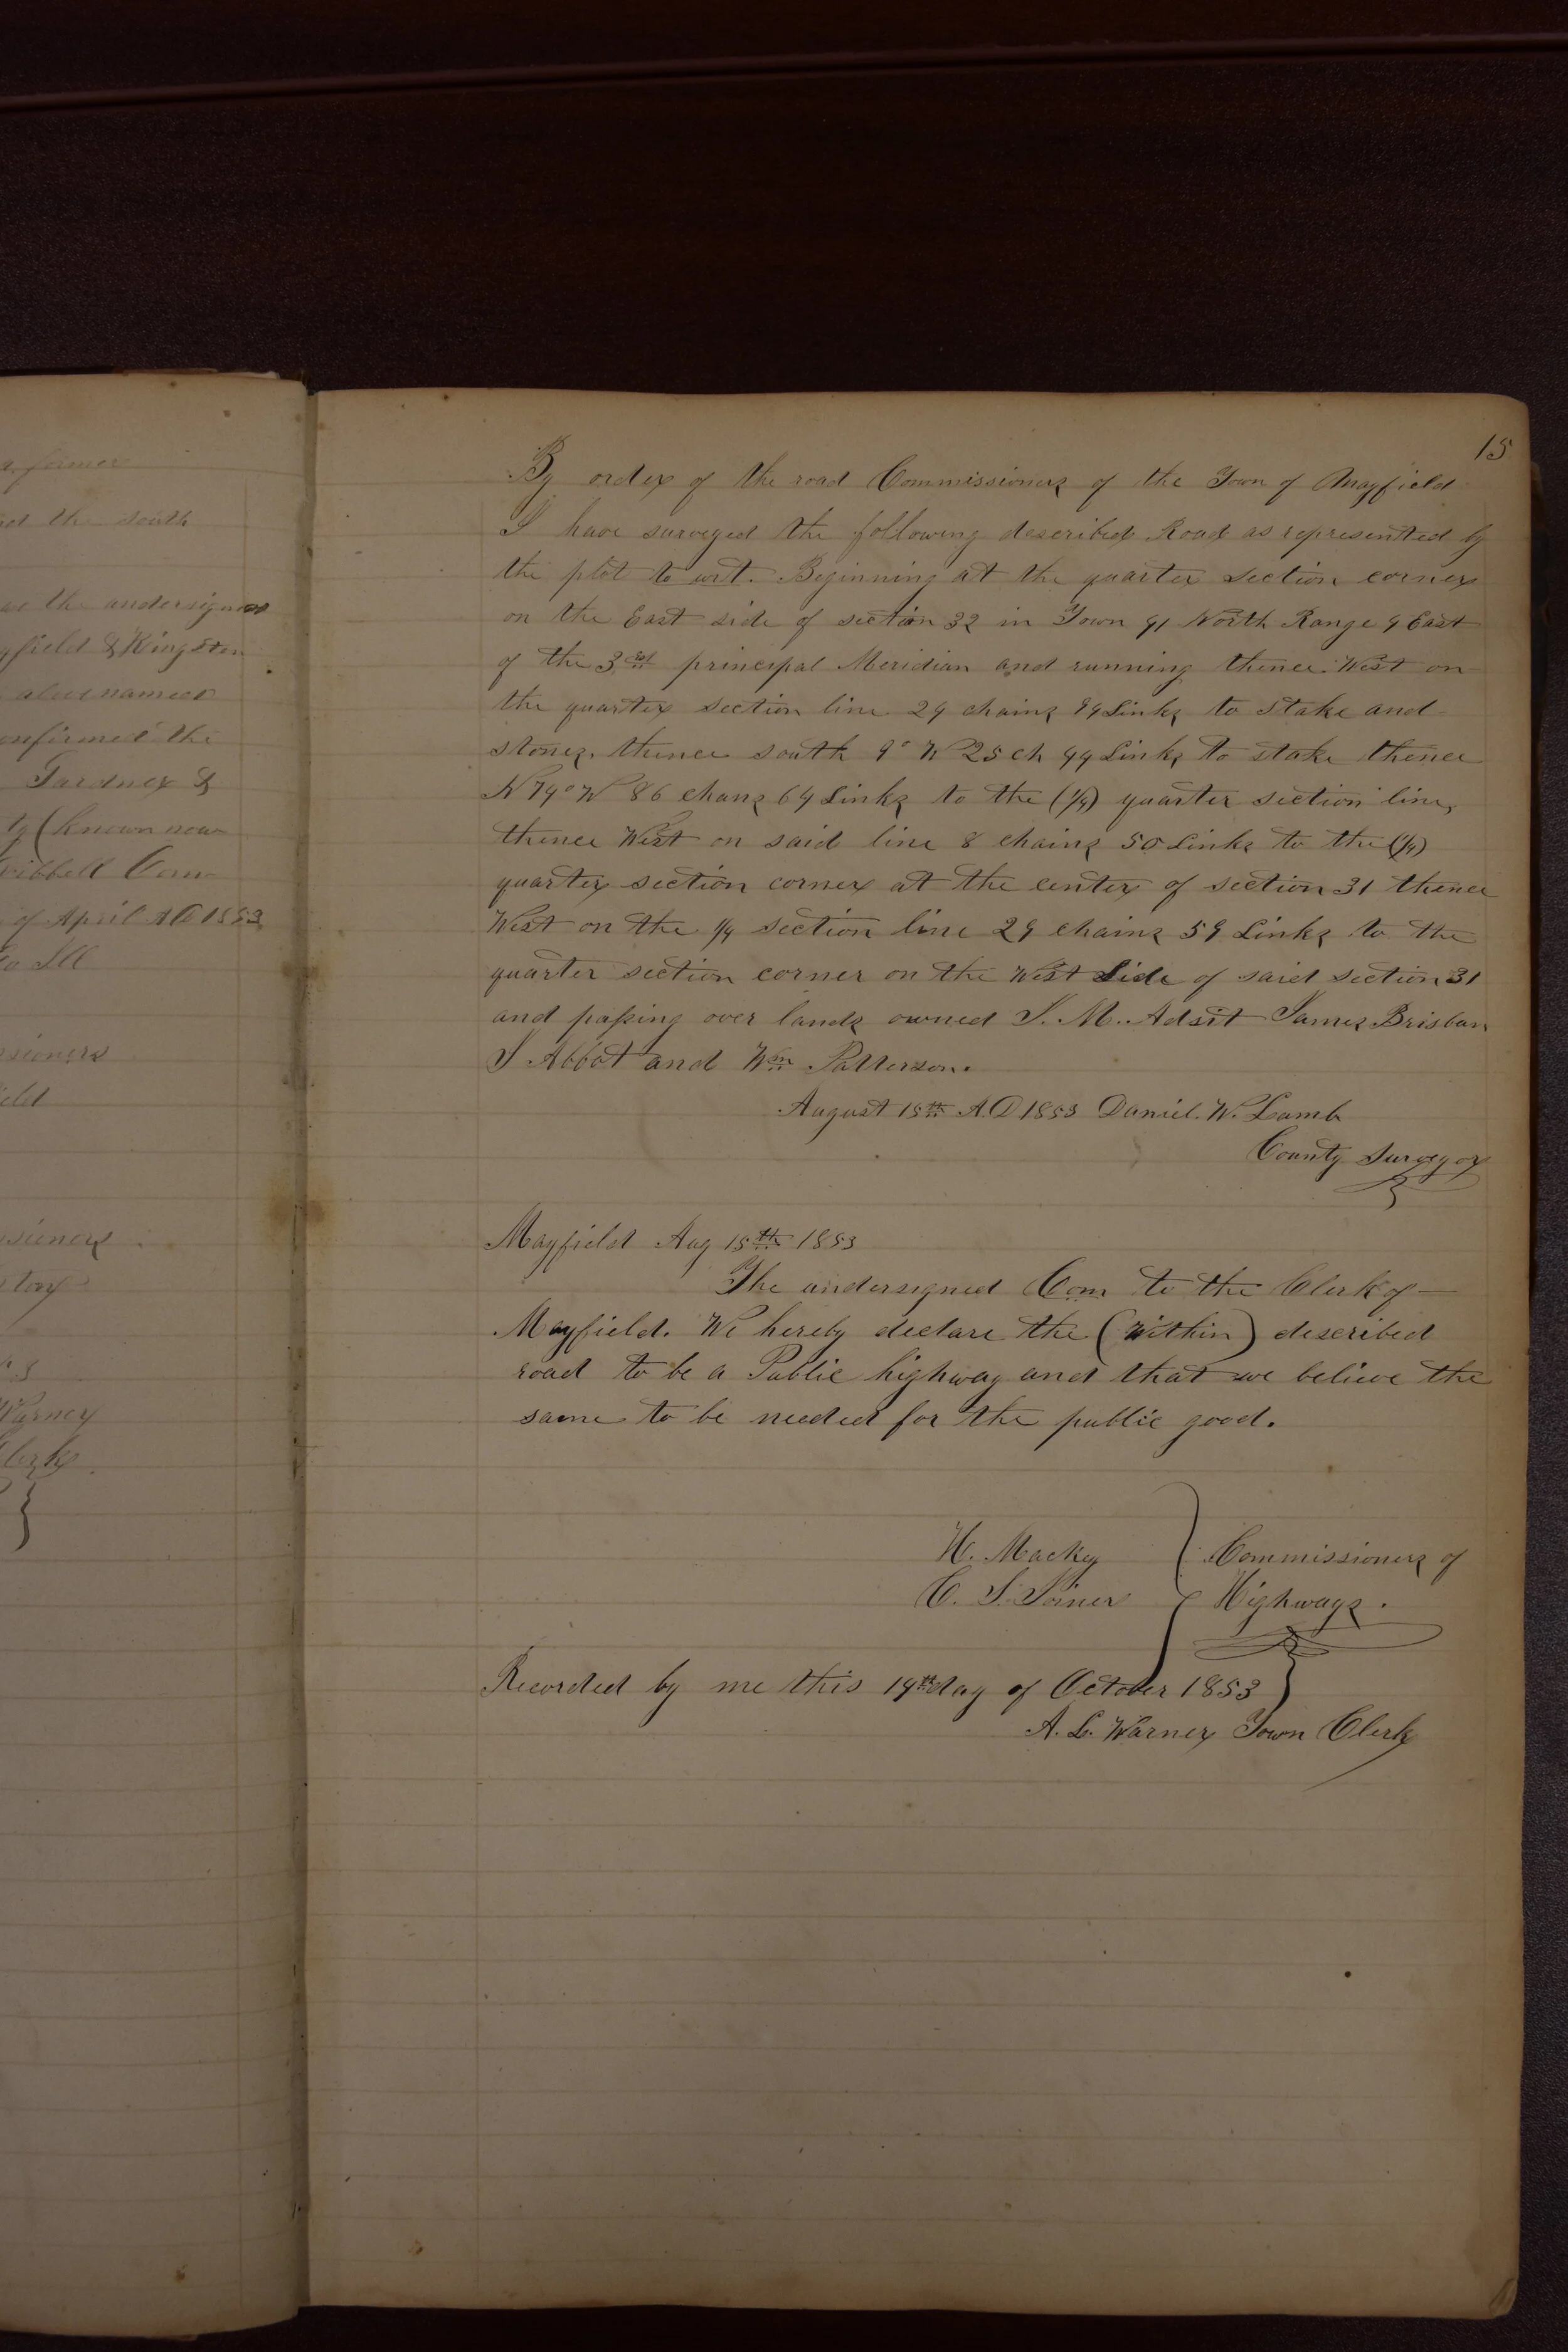 a former
the south
the undersigned
field & Kingston
above named
confirmed the
Gardner &
ty (known now
of April AD 1853
Co Ill
sioners
eld
sioners
Warner
Clerk
15
By order of the road Commissioners of the Town of Mayfield
I have surveyed the following described Road as represented by
the plot to wit. Beginning at the quarter section corner
on the East side of section 32 in Town 41 North Range 4 East
of the 3rd principal Meridian and running thence West on
the quarter section line 24 chains 94 Links to stake and
stones. thence south 9° W 25 ch 44 Links to stake thence
N 74° W 86 chans 64 Links to the (1/4) quarter section line,
thence West on said line 8 chains 50 Links to the (1/4)
quarter section corner at the center of section 31 thence
West on the 1/4 section line 29 chains 59 Links to the
quarter section corner on the West Side of said section 31
and passing over lands owned I. M. Adsit James Brisban
I Abbot and Wm Patterson.
August 15th A.D 1853 Daniel. W. Lamb
County Surveyor
Mayfield Aug 15th 1853
The undersigned Com to the Clerk of —
Mayfield. We hereby declare the (within) described
road to be a Public highway and that we believe the
same to be needed for the public good.
H. Macky } Commissioners of
C. S. Joiner Highways.
Recorded by me this 19th day of October 1853 }
A. L. Warner Town Clerk